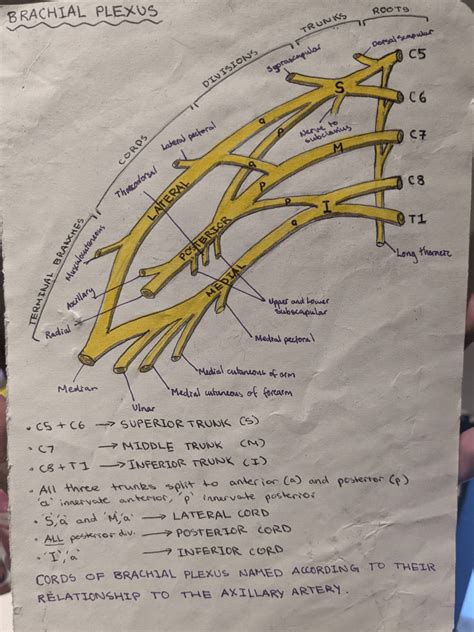 BRACHIAL PLEXUS
ROOTS
TRUNKS
DIVISIONS
CORDS
TERMINAL BRANCHES
Dorsal scapular
Suprascapular
C5
S
C6
a
p
Nerve to subclavius
Lateral pectoral
C7
M
a
p
Thoracodorsal
LATERAL
C8
p
I
T1
a
POSTERIOR
Musculocutaneous
MEDIAL
Long thoracic
Axillary
Radial
Upper and lower
subscapular
Medial pectoral
Median
Medial cutaneous of arm
Medial cutaneous of forearm
Ulnar
• C5 + C6 → SUPERIOR TRUNK (S)
• C7 → MIDDLE TRUNK (M)
• C8 + T1 → INFERIOR TRUNK (I)
• All three trunks split to anterior (a) and posterior (p)
'a' innervate anterior, 'p' innervate posterior
• 'S,a' and 'M,a' → LATERAL CORD
• ALL posterior div. → POSTERIOR CORD
• 'I','a' → INFERIOR CORD
CORDS OF BRACHIAL PLEXUS NAMED ACCORDING TO THEIR
RELATIONSHIP TO THE AXILLARY ARTERY.